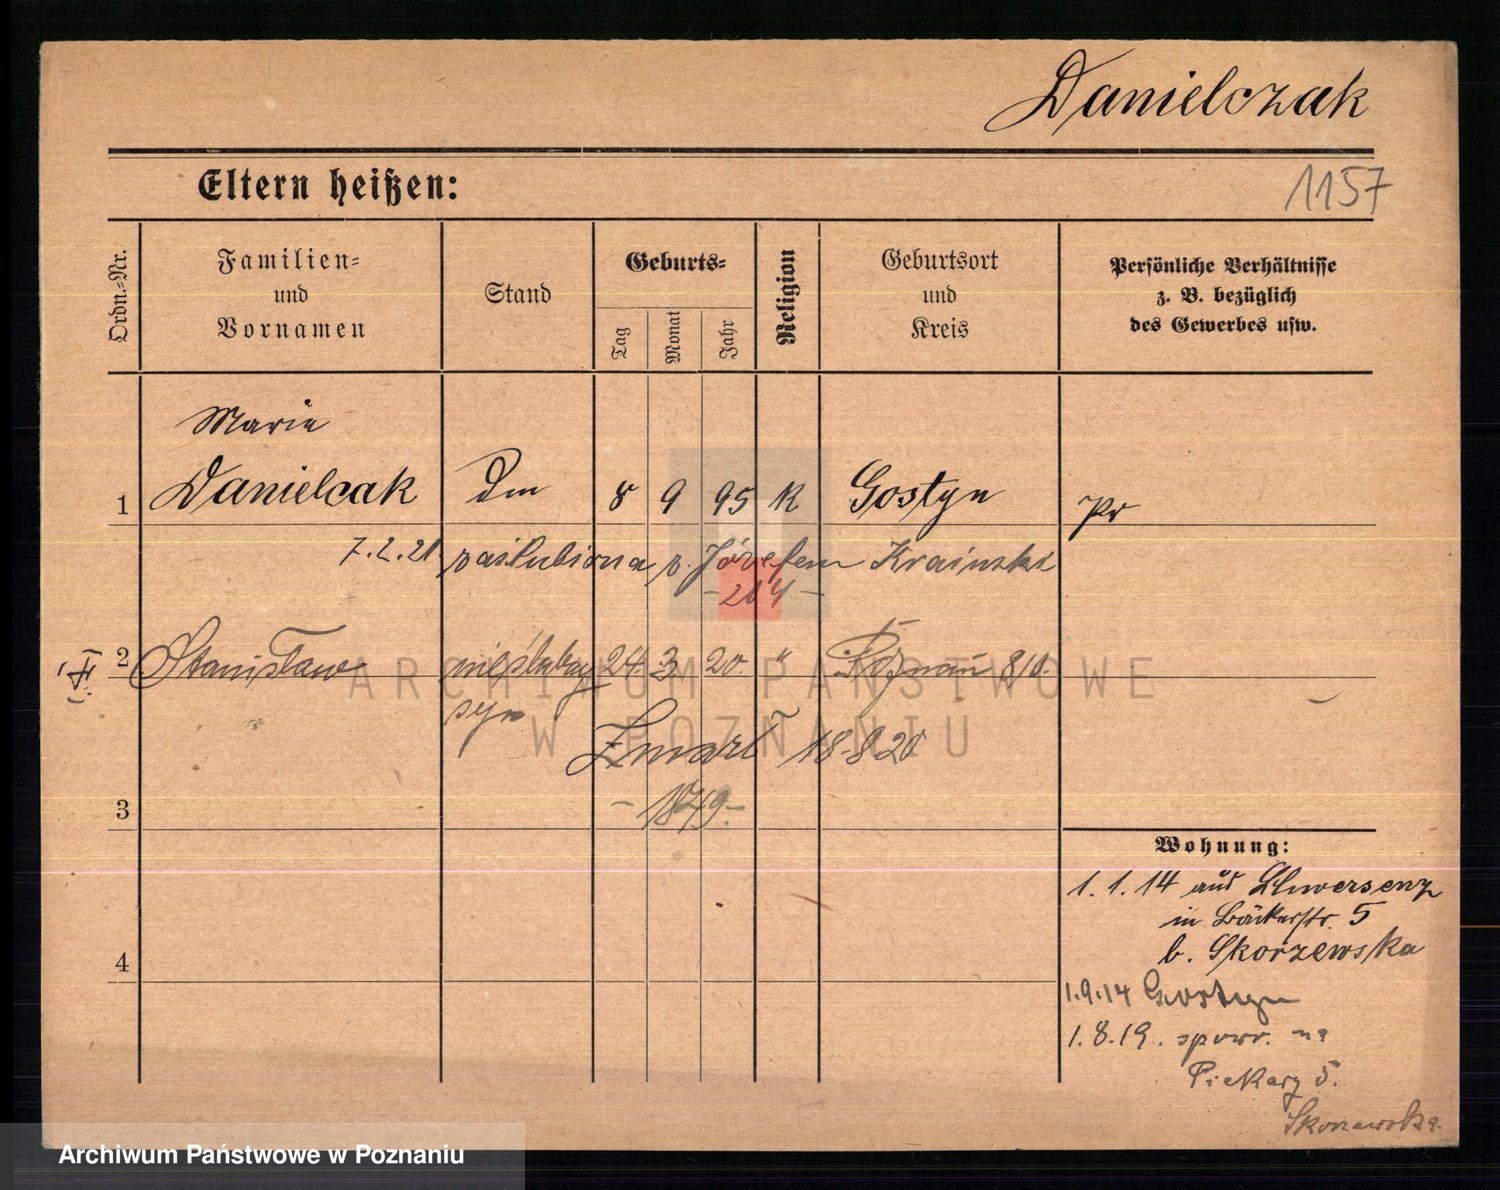 Danielczak
Eltern heißen:
1157
Ordn.-Nr.
Familien-
und
Vornamen
Stand
Geburts-
Tag
Monat
Jahr
Religion
Geburtsort
und
Kreis
Persönliche Verhältnisse
z. B. bezüglich
des Gewerbes usw.
Marie
1 Danielcak Dm 8 9 95 K Gostyn Pr
7.2.21 zaślubiona z. Józefem Krainski
-204-
2 Stanisław nieślubny 24. 3 20. " Poznań 8/0.
syn
Zmarł 18-8-20
-1849-
3
4
Wohnung:
1.1.14 aus Schwersenz
in Bäckerstr. 5
b. Skorzewska
1.9.14 Gostyn
1.8.19. spowr. na
Piekary 5.
Skorzewska.
ARCHIWUM PAŃSTWOWE
W POZNANIU
Archiwum Państwowe w Poznaniu